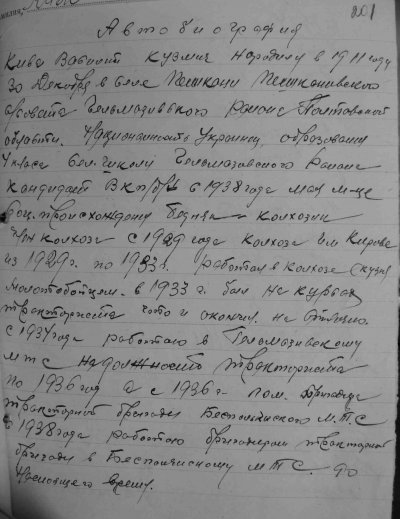 201
Автобиография
Кива Василий Кузмич народився в 1911 году
30 декабря в селе Пешкани Пешкановского
сельсовета Гельмазивского района Полтавской
области. Национальность Украинец, образование
4 класа Сел. школи Гельмазовского Района
Кандидат ВКП(б) с 1938 года май м-це
Соц. происхождение бедняк – колхозник
Член колхоза с 1929 года колхоза им. Кирова
из 1929 г. по 1933 г. работал в колхозе
Молотобойцем. в 1933 г. був на курсах
тракториста что и окончил на отлично.
с 1934 года работаю в Гельмазивскому
МТС на должности тракториста
по 1936 год а с 1936 г. пом. бригадира
тракторной бригади М.Т.С
с 1938 года работаю бригадиром тракторной
бригади в М.Т.С. до
настоящего время.